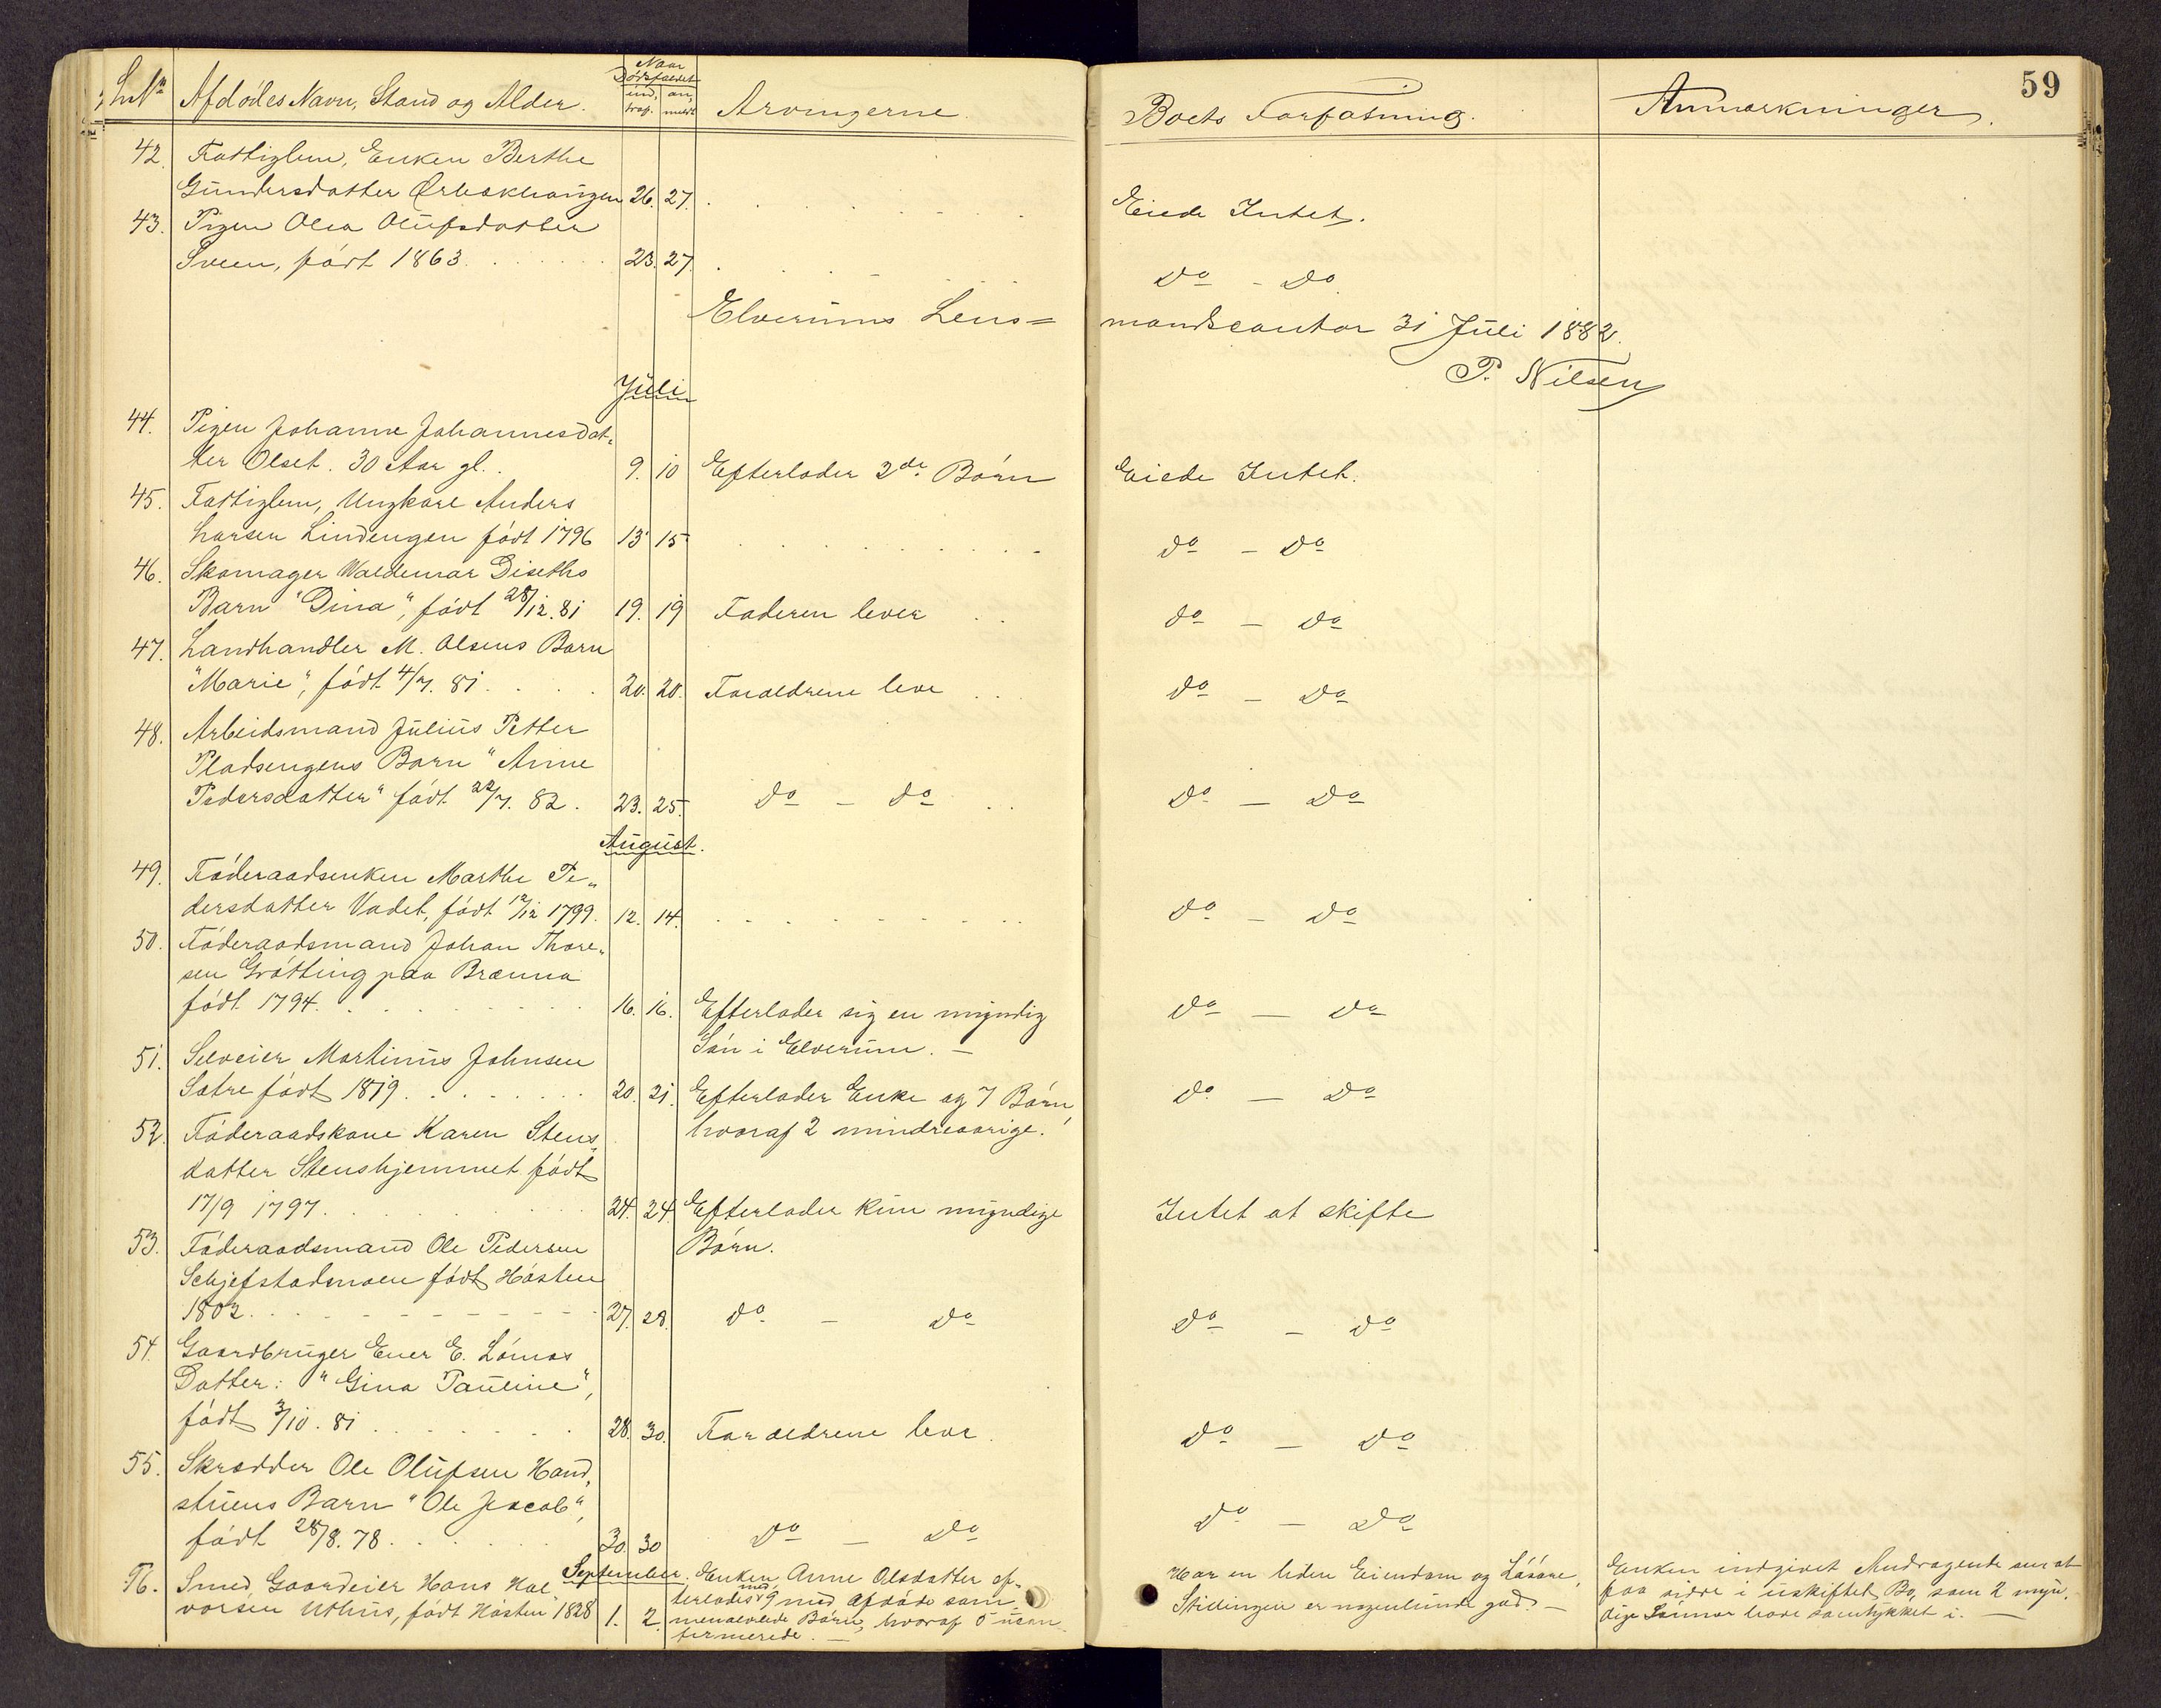 59
LbNr Afdødes Navn, Stand og Alder. Naar Dødsfaldet indtraf. anmeldt Arvingerne. Boets Forfatning. Anmærkninger.
42. Fattiglem, Enken Berthe
Gundersdatter Ørbækhaugen 26. 27. Eiede Intet.
43. Pigen Olea Olufsdatter
Sveen, født 1863. 23. 27. do - do
Elverums Lens= mandscontor 31 Juli 1882.
P. Nilsen
Juli
44. Pigen Johanne Johannesdat-
ter Olset. 30 Aar gl. 9. 10 Efterlader 2de Børn Eiede Intet.
45. Fattiglem, Ungkarl Anders
Larsen Lindengen født 1796 13 15 do - do
46. Skomager Waldemar Diseths
Barn "Dina", født 28/12. 81 19. 19 Faderen lever do - do
47. Landhandler M. Olsens Barn
"Marie", født 4/7. 81. 20. 20. Forældrene leve do - do
48. Arbeidsmand Julius Petter
Pladsengens Barn "Anne
Pedersdatter" født 22/7. 82. 23. 25. do - do do - do
August.
49. Føderaadsenken Marthe Pe-
dersdatter Vadet, født 12/12 1799. 12. 14. do - do
50. Føderaadsmand Johan Thore-
sen Grøtting paa Brænna
født 1794. 16. 16. Efterlader sig en myndig do - do
Søn i Elverum. -
51. Selveier Martinus Johnsen
Sætre født 1819. 20. 21. Efterlader Enke og 7 Børn, do - do
hvoraf 2 mindreaarige.
52. Føderaadskone Karen Stens-
datter Stenshjemmet født
17/9 1797. 24. 24. Efterlader kun myndige Intet at skifte
Børn.
53. Føderaadsmand Ole Pedersen
Schjefstadmoen født Høsten
1802. 27. 28. do - do do - do
54. Gaardbruger Ener E. Lømos
Datter: "Gina Pauline",
født 3/10. 81 28. 30. Forældrene leve. do - do
55. Skrædder Ole Olufsen Hand-
stuens Barn "Ole Jacob",
født 28/8. 78. 30. 30 do - do do - do
September.
56. Smed, Gaardeier Hans Hal-
vorsen Uthus, født Høsten 1828 1. 2.
Enken Anne Olsdatter ef-
terlades med 9 med Afdøde sam-
menavlede Børn, hvoraf 5 ukon-
firmerede. -
Har en liden Eiendom og Løsøre,
Stillingen er nogenlunde god. -
Enken indgivet Andragende om at
faa sidde i uskiftet Bo, som 2 myn-
dige Sønner have samtykket i. -